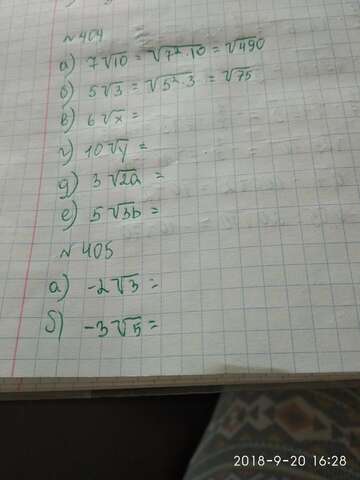 № 404
а) 7√10 = √7²·10 = √490
б) 5√3 = √5²·3 = √75
в) 6√x =
г) 10√y =
д) 3√2a =
е) 5√3b =
№ 405
а) -2√3 =
б) -3√5 =
2018-9-20 16:28